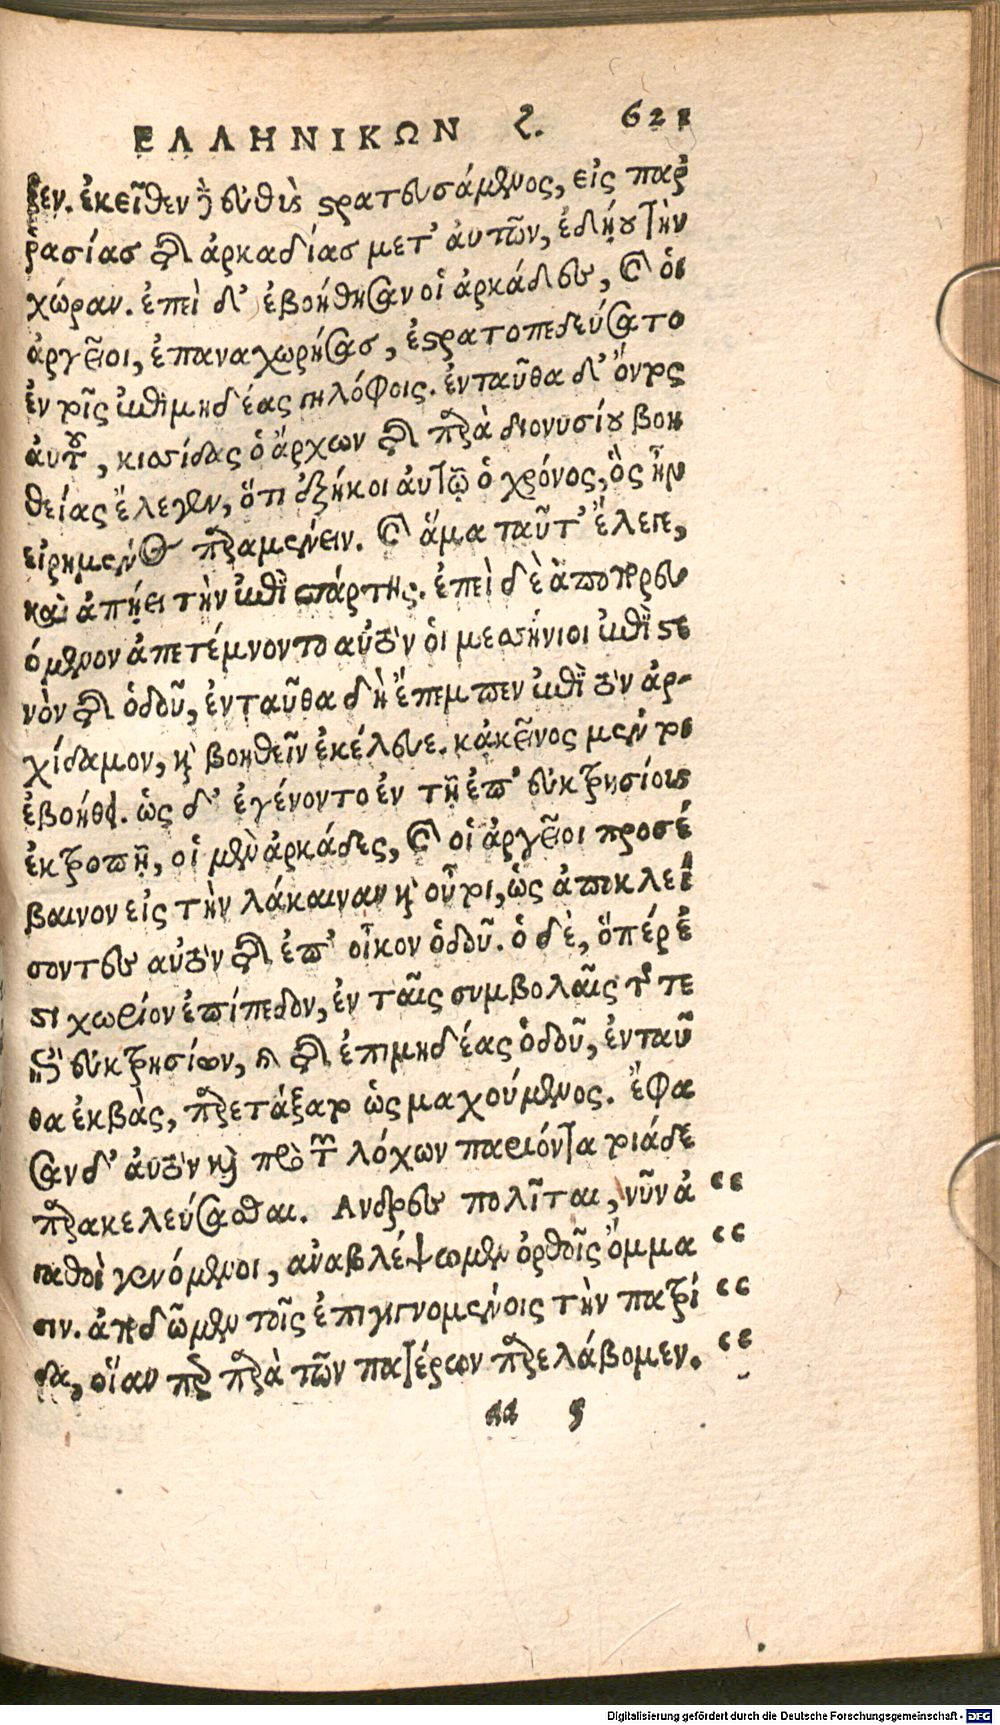 ΕΛΛΗΝΙΚΩΝ ζ. 621
ξεν. ἐκεῖθεν δ' εὐθὺς στρατευσάμενος, εἰς παῤ
ῥασίας τῆς ἀρκαδίας μετ' αὐτῶν, ἐδῄου τὴν
χώραν. ἐπεὶ δ' ἐβοήθησαν οἱ ἀρκάδες, καὶ οἱ
ἀργεῖοι, ἐπαναχωρήσας, ἐστρατοπεδεύσατο
ἐν τοῖς ἐπὶ μηδέας γηλόφοις. ἐνταῦθα δ' ὄντος
αὐτοῦ, κισσίδας ὁ ἄρχων τῆς παρὰ διονυσίου βοη
θείας ἔλεγεν, ὅτι ἐξήκοι αὐτῷ ὁ χρόνος, ὃς ἦν
εἰρημένος παραμένειν. καὶ ἅμα ταῦτ' ἔλεγε,
καὶ ἀπῄει τὴν ἐπὶ σπάρτης. ἐπεὶ δὲ ἀποπορευ
όμενον ἀπετέμνοντο αὐτὸν οἱ μεσσήνιοι ἐπὶ στε
νὸν τῆς ὁδοῦ, ἐνταῦθα δὴ ἔπεμπεν ἐπὶ τὸν ἀρ-
χίδαμον, καὶ βοηθεῖν ἐκέλευε. κἀκεῖνος μέντοι
ἐβοήθει. ὡς δ' ἐγένοντο ἐν τῇ ἐπ' εὐκτρησίους
ἐκτροπῇ, οἱ μὲν ἀρκάδες, καὶ οἱ ἀργεῖοι προσέ
βαινον εἰς τὴν λάκαιναν καὶ οὗτοι, ὡς ἀποκλεί
σοντες αὐτὸν τῆς ἐπ' οἶκον ὁδοῦ. ὁ δὲ, ὅπέρ ἐ
στι χωρίον ἐπίπεδον, ἐν ταῖς συμβολαῖς τῆς τε
ἐπ' εὐκτρησίων, καὶ τῆς ἐπὶ μηδέας ὁδοῦ, ἐνταῦ
θα ἐκβὰς, παρετάξατο ὡς μαχούμενος. ἔφα
σαν δ' αὐτὸν καὶ πρὸ τῶν λόχων παριόντα τοιάδε
παρακελεύσασθαι. Ἄνδρες πολῖται, νῦν ἀ “
γαθοὶ γενόμενοι, ἀναβλέψωμεν ὀρθοῖς ὄμμα “
σιν. ἀποδῶμεν τοῖς ἐπιγιγνομένοις τὴν πατρί “
δα, οἵαν περ παρὰ τῶν πατέρων παρελάβομεν. “